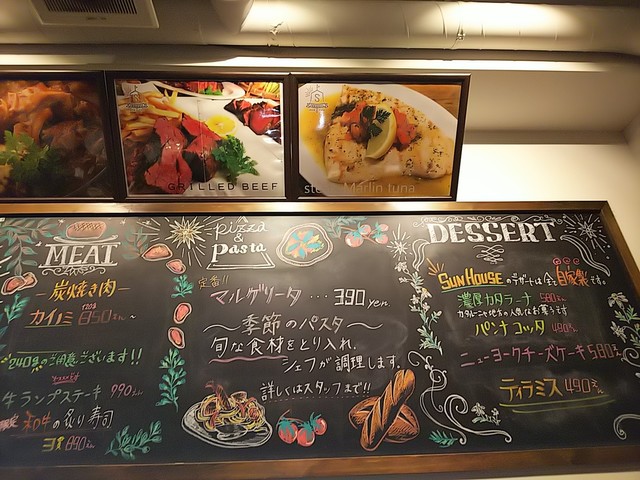 GRILLED BEEF
Marlin tuna
MEAT
炭焼き肉
カイノミ 100g 850yen~
240gのご用意ございます!!
牛ランプステーキ 990
和牛の炙り寿司
890
pizza
&
pasta
定番!!
マルゲリータ … 390 yen.
〜季節のパスタ〜
旬な食材をとり入れ、
シェフが調理します。
詳しくはスタッフまで!!
DESSERT
SUN HOUSEのデザートは全て自家製です。
濃厚カタラーナ 580
パンナコッタ 490
ニューヨークチーズケーキ 580
ティラミス 490